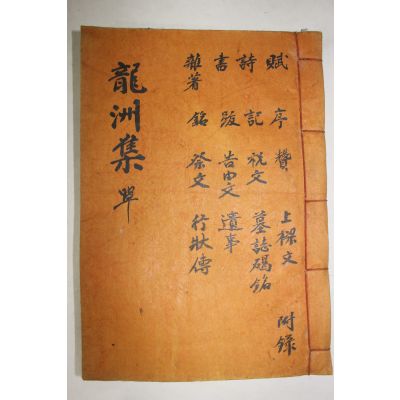 賦 序 贊 上樑文 附錄
詩 記 祝文 墓誌碣銘
書 跋 告由文 遺事
雜著 銘 祭文 行狀傳
龍洲集 單